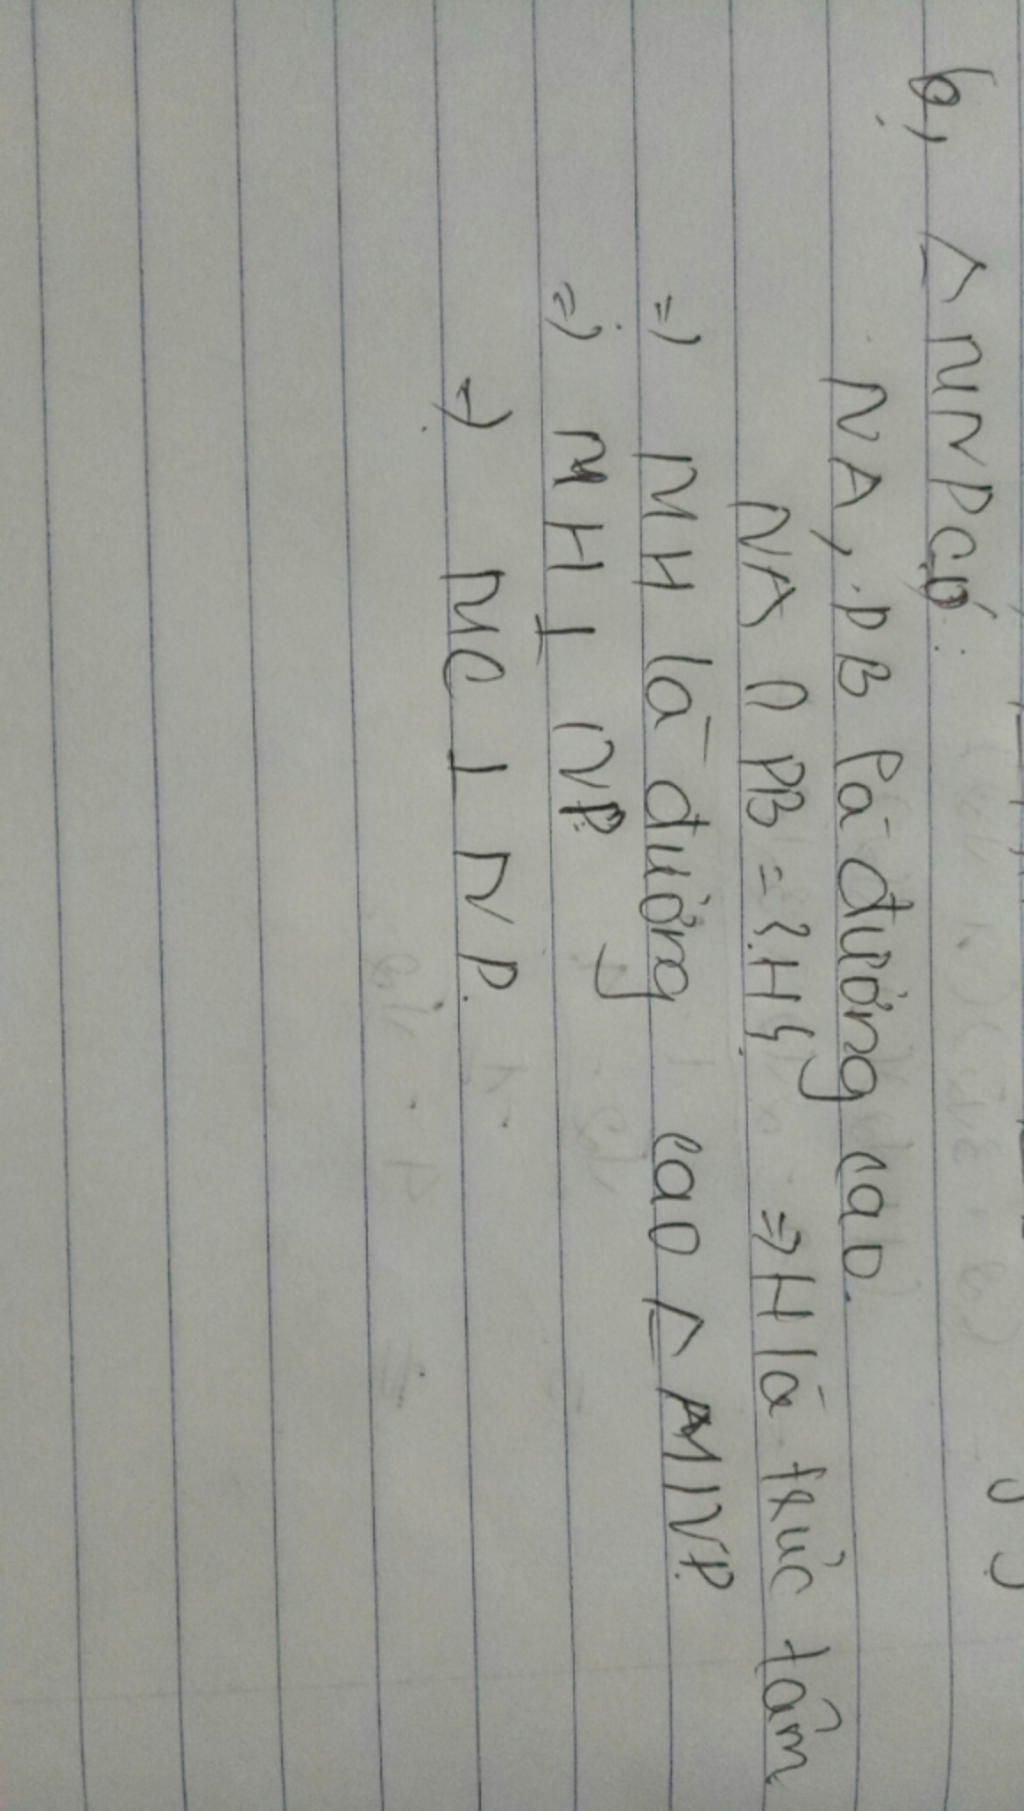 b, △ MNP có:
NA, PB là đường cao.
NA ∩ PB = {H} => H là trực tâm
=> MH là đường cao △ MNP.
=> MH ⊥ NP
=> MC ⊥ NP.